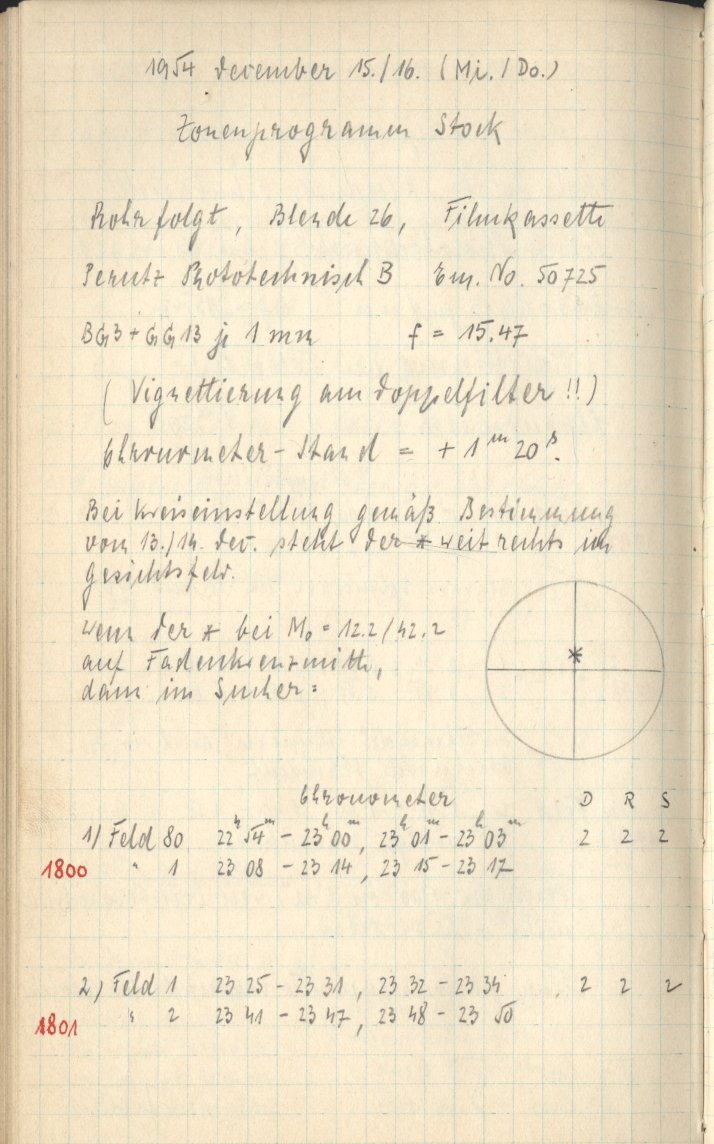 1954 December 15./16. (Mi./Do.)
Zonenprogramm Stock
Rohr folgt, Blende 26, Filmkassette
Perutz Phototechnisch B Em. No. 50725
BG3 + GG13 je 1 mm f = 15.47
(Vignettierung am Doppelfilter!!)
Chronometer-Stand = + 1ᵐ 20ˢ.
Bei Kreiseinstellung gemäß Bestimmung
vom 13./14. Dec. steht der * weit rechts im
Gesichtsfeld.
Wenn der * bei M₀ = 12.2/42.2
auf Fadenkreuzmitte,
dann im Sucher:
Chronometer D R S
1) Feld 80 22ʰ54ᵐ - 23ʰ00ᵐ, 23ʰ01ᵐ - 23ʰ03ᵐ 2 2 2
1800 " 1 23 08 - 23 14, 23 15 - 23 17
2) Feld 1 23 25 - 23 31, 23 32 - 23 34 2 2 2
1801 " 2 23 41 - 23 47, 23 48 - 23 50